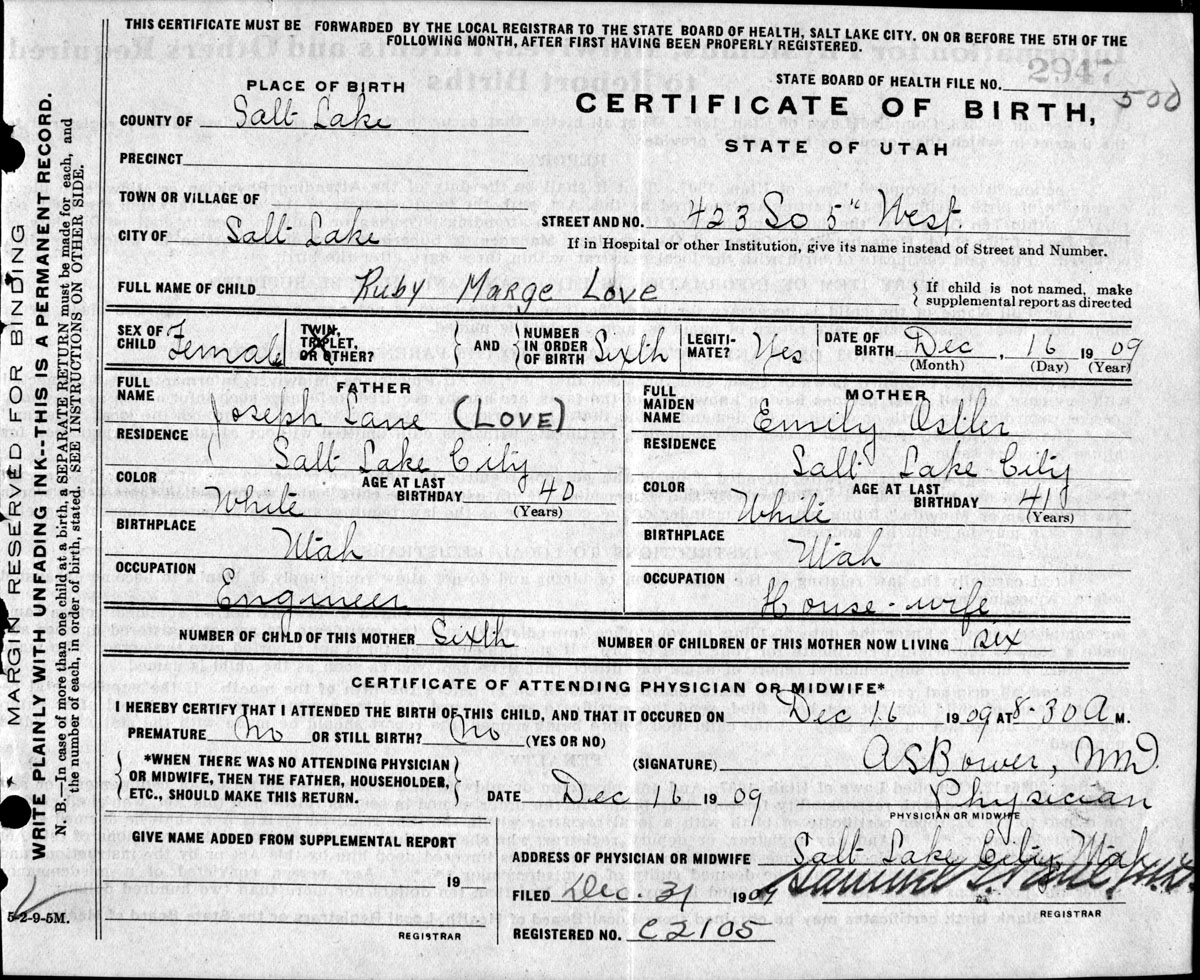 THIS CERTIFICATE MUST BE FORWARDED BY THE LOCAL REGISTRAR TO THE STATE BOARD OF HEALTH, SALT LAKE CITY, ON OR BEFORE THE 5TH OF THE
FOLLOWING MONTH, AFTER FIRST HAVING BEEN PROPERLY REGISTERED.
STATE BOARD OF HEALTH FILE NO. 2947
500
PLACE OF BIRTH
CERTIFICATE OF BIRTH,
STATE OF UTAH
COUNTY OF Salt Lake
PRECINCT
TOWN OR VILLAGE OF
CITY OF Salt Lake
STREET AND NO. 423 So 5th West.
If in Hospital or other Institution, give its name instead of Street and Number.
FULL NAME OF CHILD Ruby Marge Love
{ If child is not named, make
supplemental report as directed
SEX OF CHILD Female
TWIN, TRIPLET, OR OTHER?
AND { NUMBER IN ORDER OF BIRTH Sixth
LEGITI-MATE? Yes
DATE OF BIRTH Dec, 16 1909
(Month) (Day) (Year)
FATHER
FULL NAME Joseph Lane (LOVE)
RESIDENCE
Salt Lake City
COLOR White
AGE AT LAST BIRTHDAY 40
(Years)
BIRTHPLACE
Utah
OCCUPATION
Engineer
MOTHER
FULL MAIDEN NAME Emily Ostler
RESIDENCE
Salt Lake City
COLOR White
AGE AT LAST BIRTHDAY 41
(Years)
BIRTHPLACE
Utah
OCCUPATION
House-wife
NUMBER OF CHILD OF THIS MOTHER Sixth
NUMBER OF CHILDREN OF THIS MOTHER NOW LIVING six
CERTIFICATE OF ATTENDING PHYSICIAN OR MIDWIFE*
I HEREBY CERTIFY THAT I ATTENDED THE BIRTH OF THIS CHILD, AND THAT IT OCCURED ON Dec 16 1909 AT 8-30 A M.
PREMATURE No OR STILL BIRTH? No (YES OR NO)
{ *WHEN THERE WAS NO ATTENDING PHYSICIAN
OR MIDWIFE, THEN THE FATHER, HOUSEHOLDER,
ETC., SHOULD MAKE THIS RETURN. }
(SIGNATURE) A S Bower, MD.
DATE Dec 16 1909
Physician
PHYSICIAN OR MIDWIFE
GIVE NAME ADDED FROM SUPPLEMENTAL REPORT
19
REGISTRAR
ADDRESS OF PHYSICIAN OR MIDWIFE Salt Lake City Utah
FILED Dec. 31 1909
REGISTRAR
REGISTERED NO. C2105
5-2-9-5M.
MARGIN RESERVED FOR BINDING
WRITE PLAINLY WITH UNFADING INK--THIS IS A PERMANENT RECORD.
N. B.—In case of more than one child at a birth, a SEPARATE RETURN must be made for each, and
the number of each, in order of birth, stated. SEE INSTRUCTIONS ON OTHER SIDE.